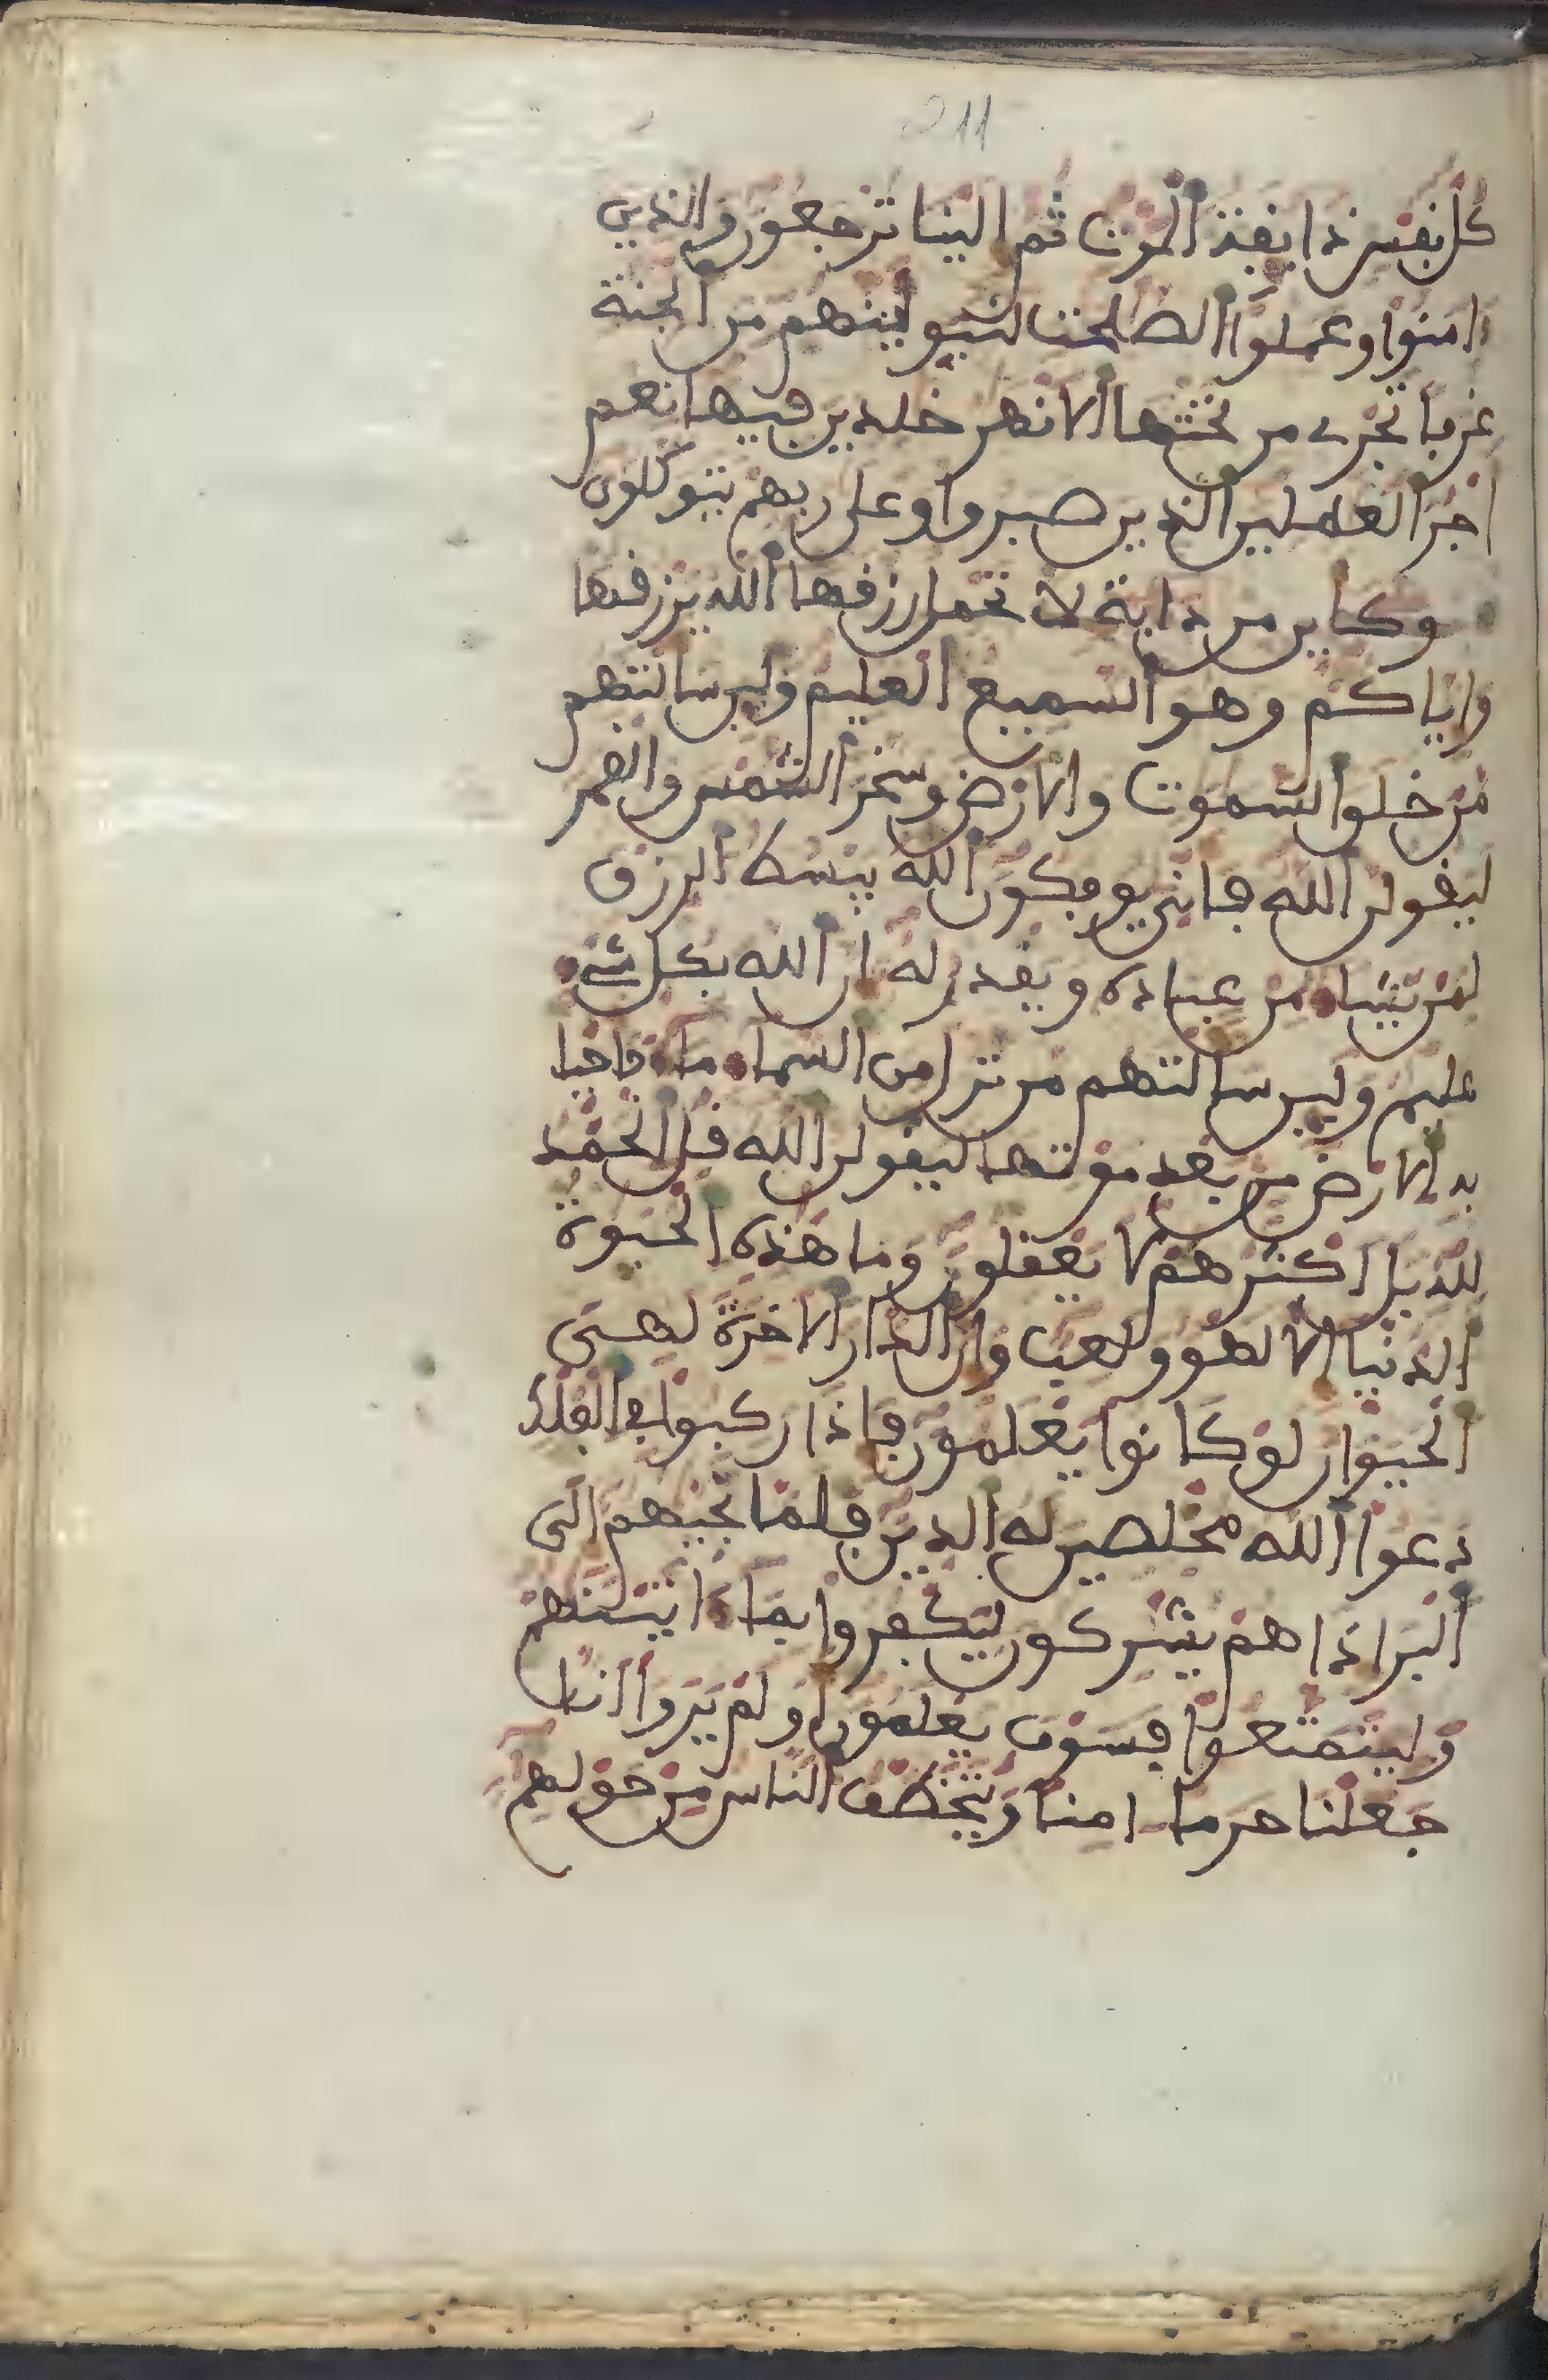 211
كل نفس ذايفة الموت ثم الينا ترجعون والذين
ءامنوا وعملوا الصلحت لنبوينهم من الجنة
غرفا تجرے من تحتها الانهر خلدين فيها نعم
اجر العملين الذين صبروا وعلى ربهم يتوكلون
وكاين من دابة لا تحمل رزقها الله يرزقها
واياكم وهو السميع العليم ولين سالتهم
من خلق السموت والارض وسخر الشمس والقمر
ليقولن الله فانى يوفكون الله يبسط الرزق
لمن يشاء من عباده ويقدر له ان الله بكل شےء
عليم ولين سالتهم من نزل من السماء ماء فاحيا
به الارض من بعد موتها ليقولن الله قل الحمد
لله بل اكثرهم لا يعقلون وما هذه الحيوة
الدنيا الا لهو ولعب وان الدار الاخرة لهى
الحيوان لو كانوا يعلمون فاذا ركبوا فے الفلك
دعوا الله مخلصين له الدين فلما نجيهم الى
البر اذا هم يشركون ليكفروا بما ءاتينهم
وليتمتعوا فسوف يعلمون او لم يروا انا
جعلنا حرما ءامنا ويتخطف الناس من حولهم